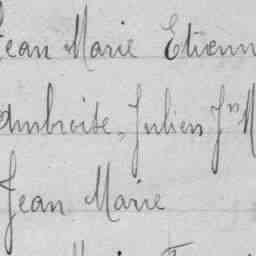 Jean Marie Etienn
Ambroise, Julien Jn M
Jean Marie